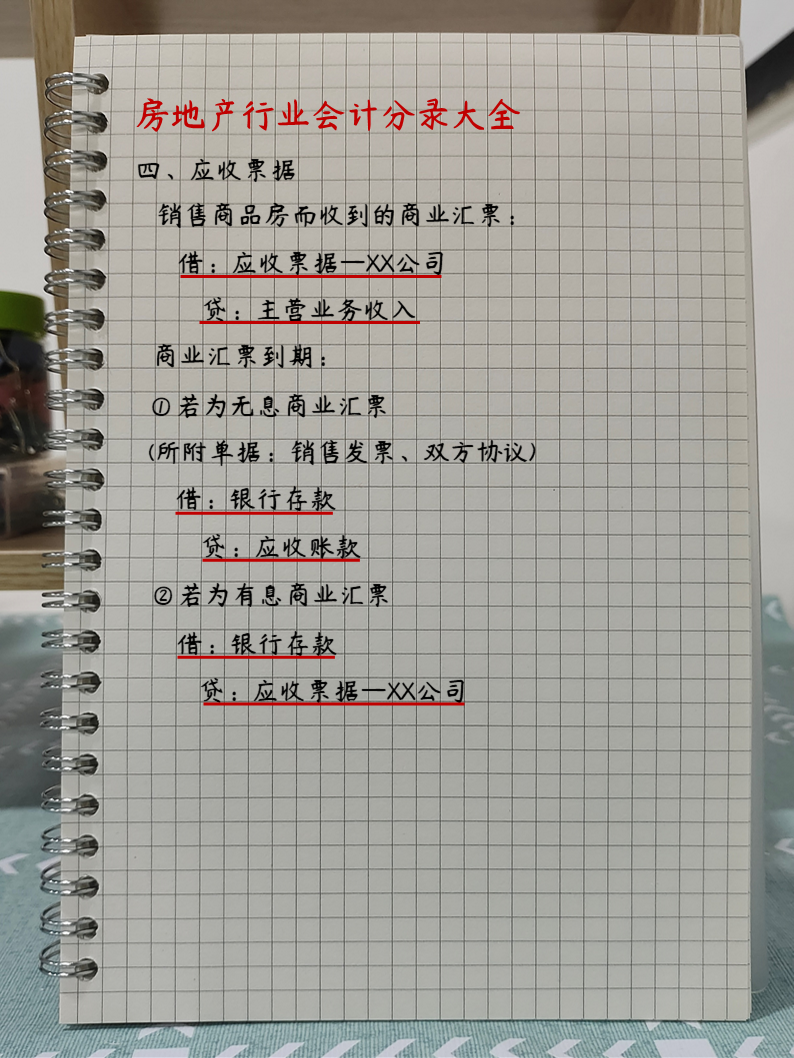 房地产行业会计分录大全
四、应收票据
销售商品房而收到的商业汇票:
借:应收票据—XX公司
贷:主营业务收入
商业汇票到期:
①若为无息商业汇票
(所附单据:销售发票、双方协议)
借:银行存款
贷:应收账款
②若为有息商业汇票
借:银行存款
贷:应收票据—XX公司